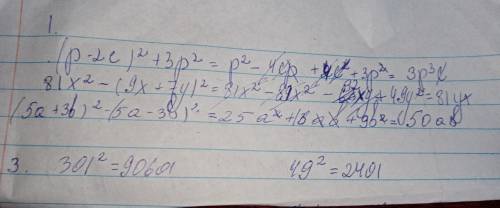 1.
(p-2c)² + 3p² = p² - 4cp + 4c² + 3p² = 3p³c
81x² - (9x + 7y)² = 81x² - 81x² - + 49y² = 81yx
(5a+3b)² (5a-3b)² = 25a² + 9b² = 50ab
3. 301² = 90601 49² = 2401